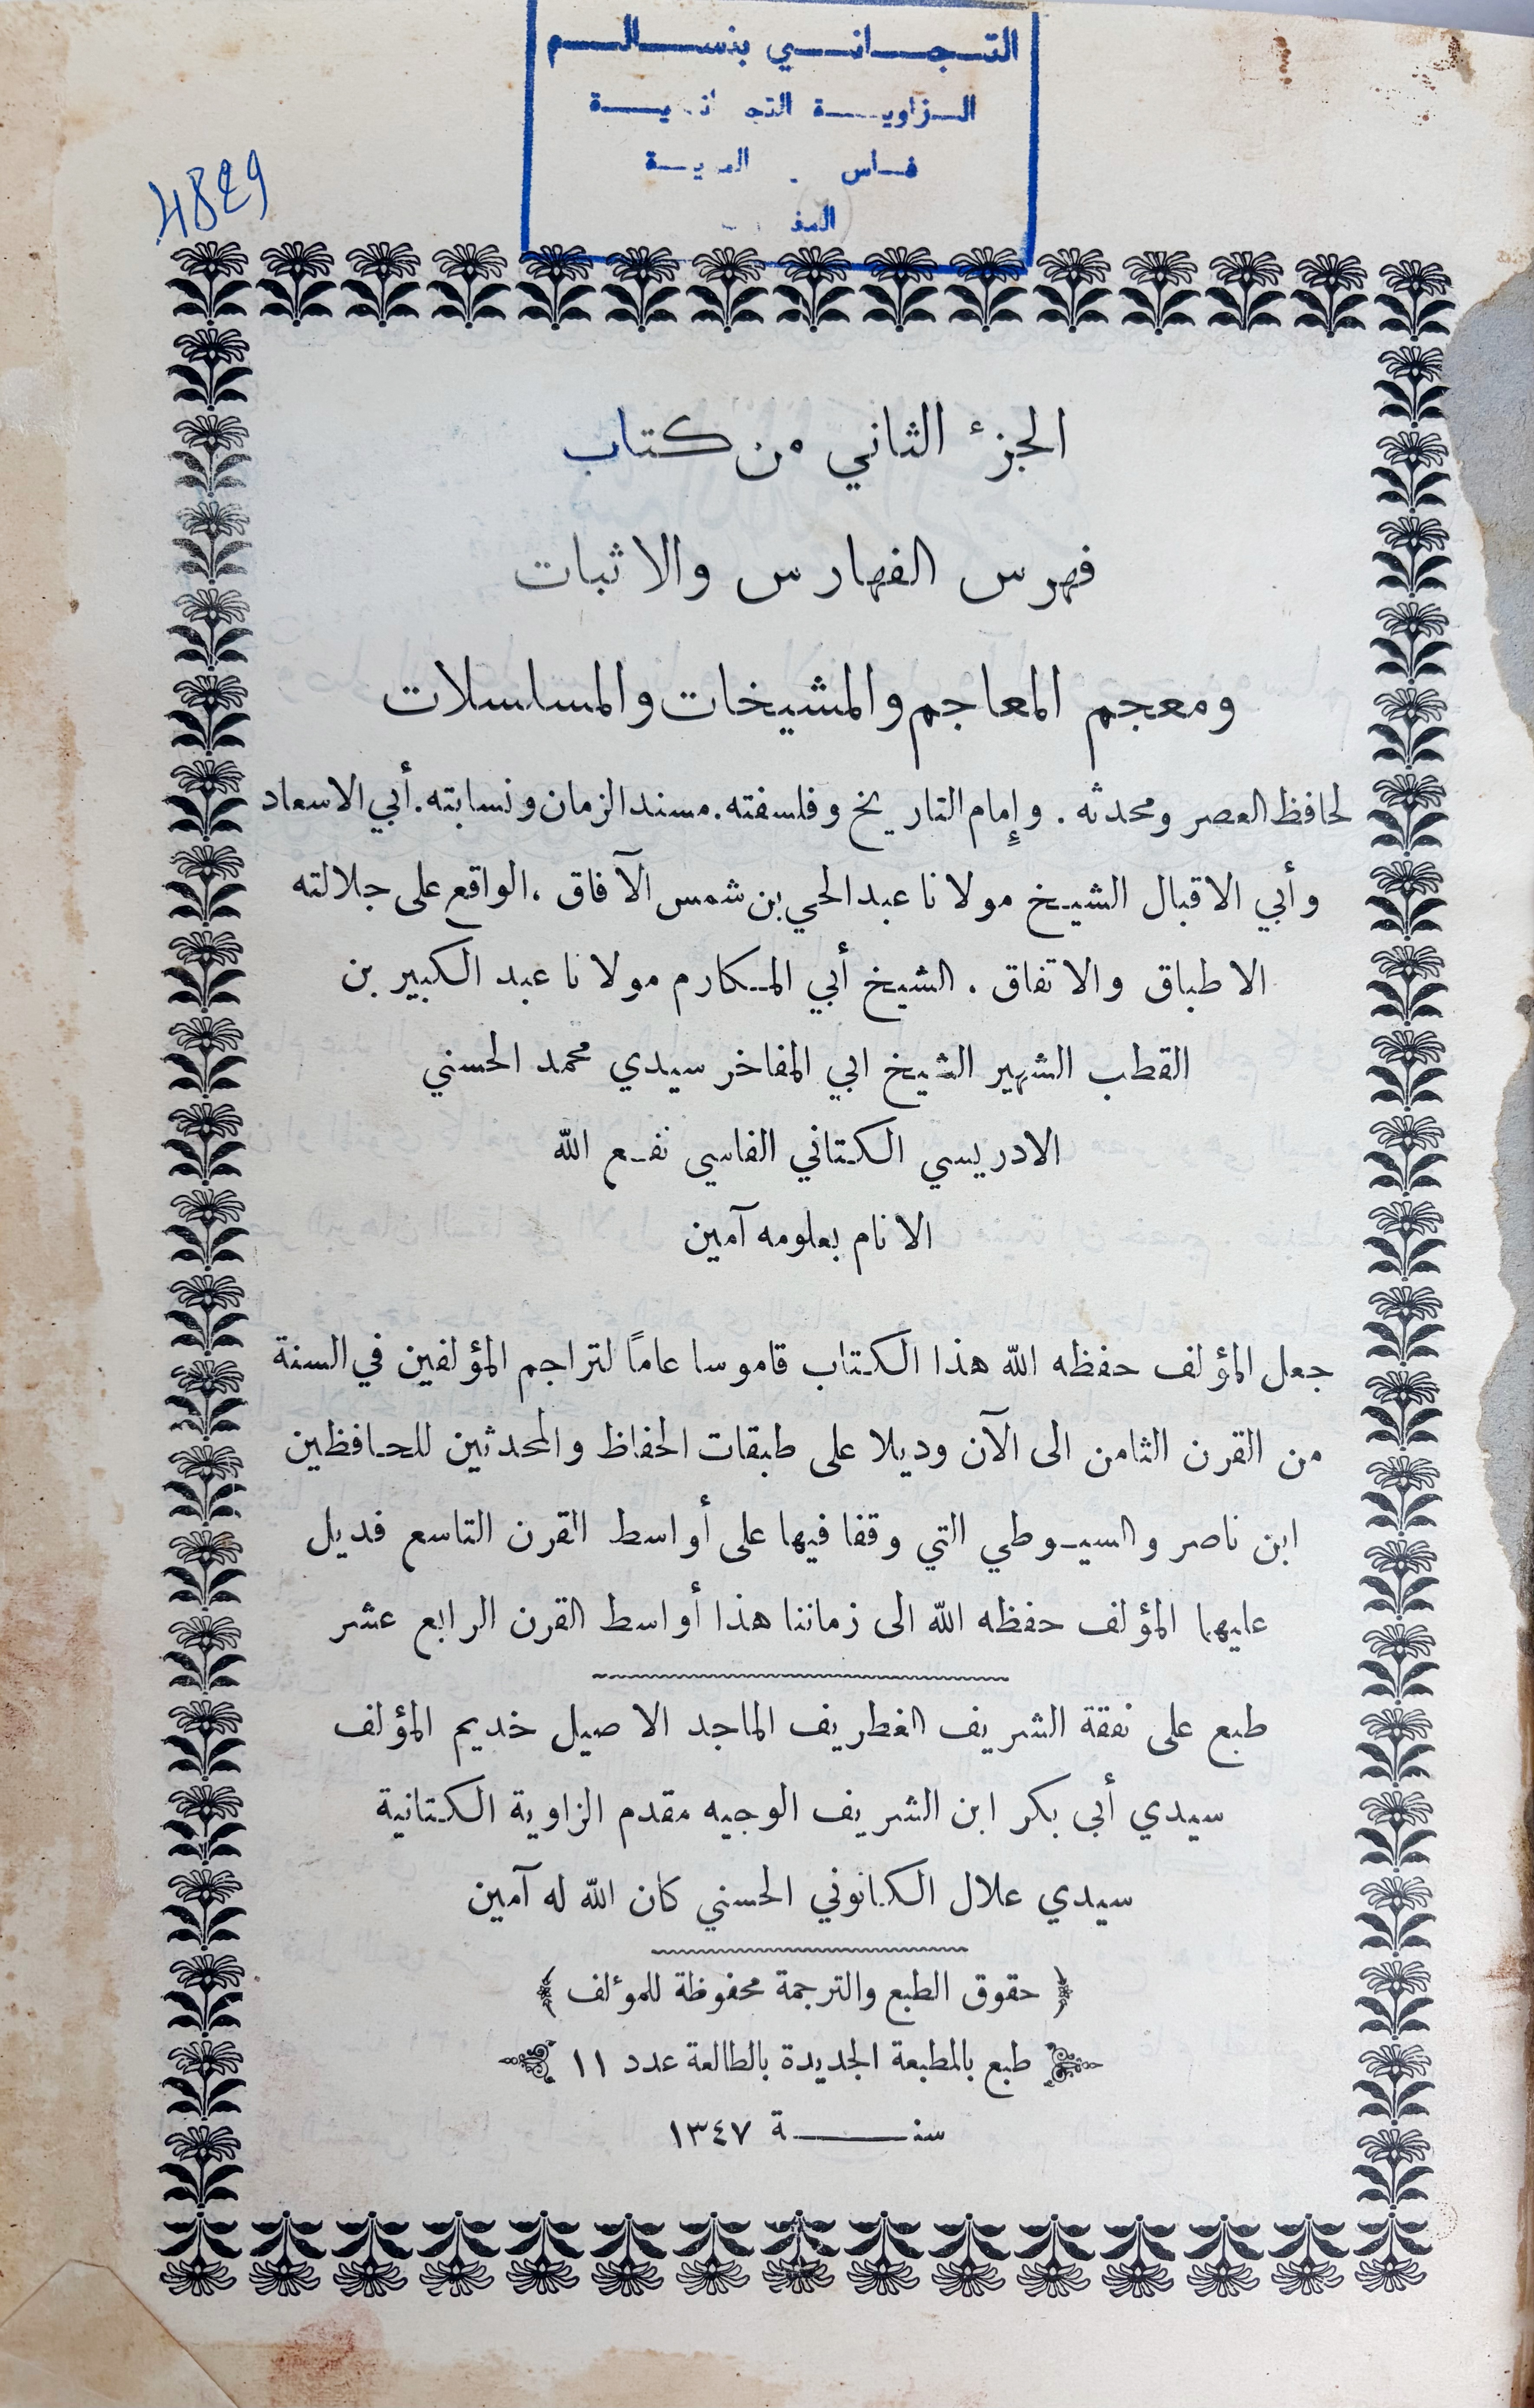 التجاني بنسالم
الزاوية
فاس
4829
الجزء الثاني من كتاب
فهرس الفهارس والاثبات
ومعجم المعاجم والمشيخات والمسلسلات
لحافظ العصر ومحدثه . وإمام التاريخ وفلسفته . مسند الزمان ونسابته . أبي الاسعاد
وأبي الاقبال الشيخ مولانا عبد الحي بن شمس الآفاق ، الواقع على جلالته
الاطباق والاتفاق . الشيخ أبي المكارم مولانا عبد الكبير بن
القطب الشهير الشيخ ابي المفاخر سيدي محمد الحسني
الادريسي الكتاني الفاسي نفع الله
الانام بعلومه آمين
جعل المؤلف حفظه الله هذا الكتاب قاموسا عاماً لتراجم المؤلفين في السنة
من القرن الثامن الى الآن وديلا على طبقات الحفاظ والمحدثين للحافظين
ابن ناصر والسيوطي التي وقفا فيها على أواسط القرن التاسع فديل
عليهما المؤلف حفظه الله الى زماننا هذا أواسط القرن الرابع عشر
طبع على نفقة الشريف الغطريف الماجد الاصيل خديم المؤلف
سيدي أبى بكر ابن الشريف الوجيه مقدم الزاوية الكتانية
سيدي علال الكانوني الحسني كان الله له آمين
﴿ حقوق الطبع والترجمة محفوظة للمؤلف ﴾
طبع بالمطبعة الجديدة بالطالعة عدد ١١
سنة ١٣٤٧